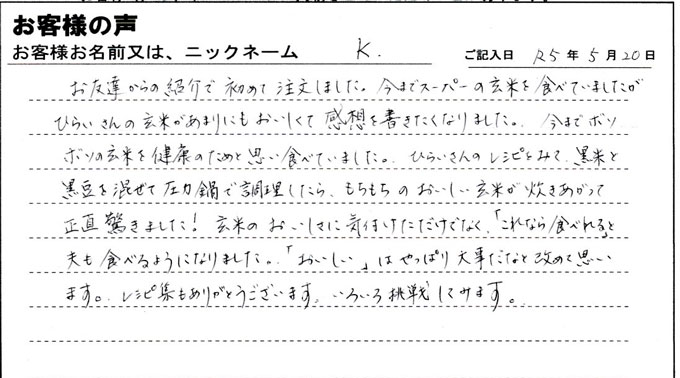 お客様の声
お客様お名前又は、ニックネーム K. ご記入日 R5年5月20日
お友達からの紹介で初めて注文しました。今までスーパーの玄米を食べていましたが
ひらいさんの玄米があまりにもおいしくて感想を書きたくなりました。今までボソ
ボソの玄米を健康のためと思い食べていました。ひらいさんのレシピをみて、黒米と
黒豆を混ぜて圧力鍋で調理したら、もちもちのおいしい玄米が炊きあがって
正直驚きました!玄米のおいしさに気付けただけでなく、「これなら食べれる」と
夫も食べるようになりました。「おいしい」はやっぱり大事だなと改めて思い
ます。レシピ集もありがとうございます。いろいろ挑戦してみます。